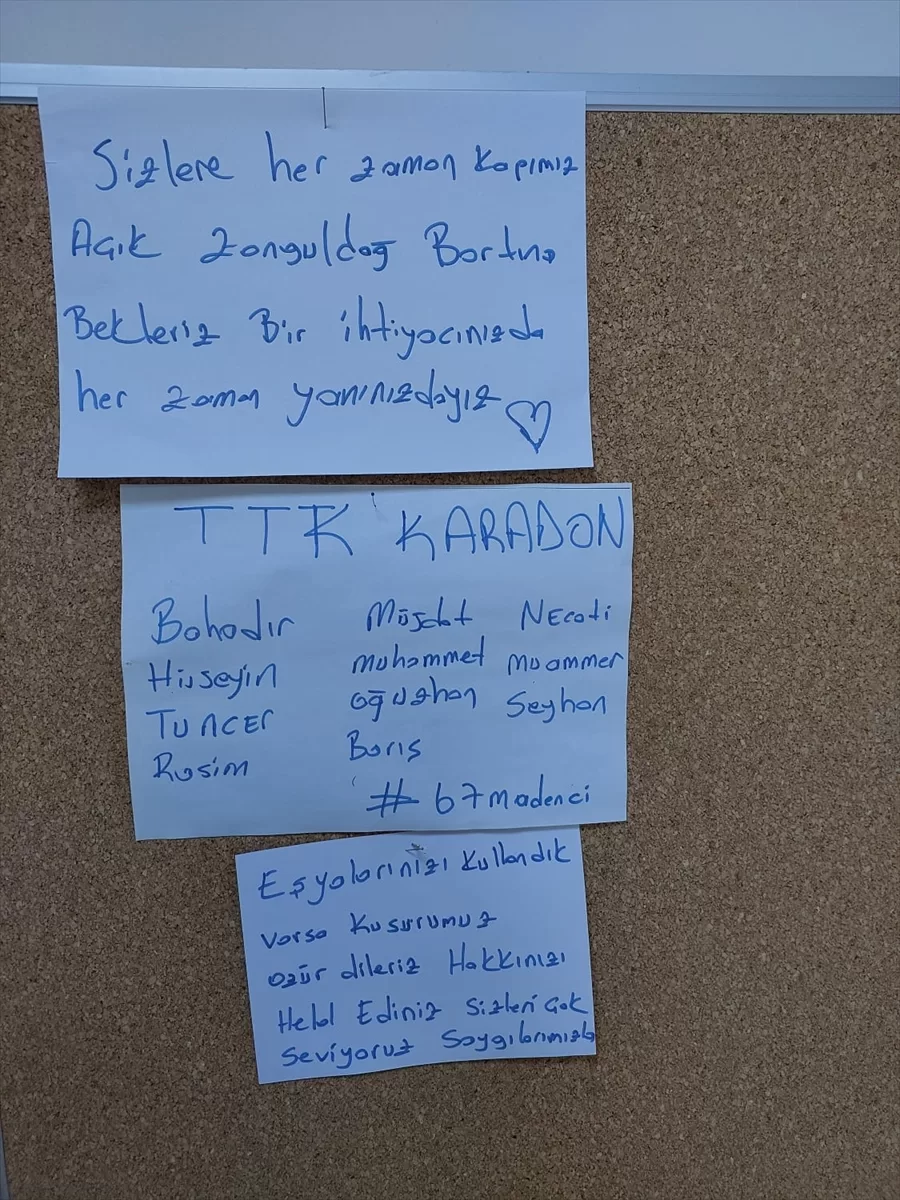 Sizlere her zaman Kapımız
Açık Zonguldağ Bartına
Bekleriz Bir ihtiyacınızda
her zaman yanınızdayız
TTK KARADON
Bahadır Müjdat Necati
Hüseyin Muhammet Muammer
TUNCER Oğuzhan Seyhan
Rasim Barış
#67madenci
Eşyalarınızı Kullandık
Varsa Kusurumuz
özür dileriz Hakkınızı
Helal Ediniz Sizleri Çok
Seviyoruz Saygılarımızla